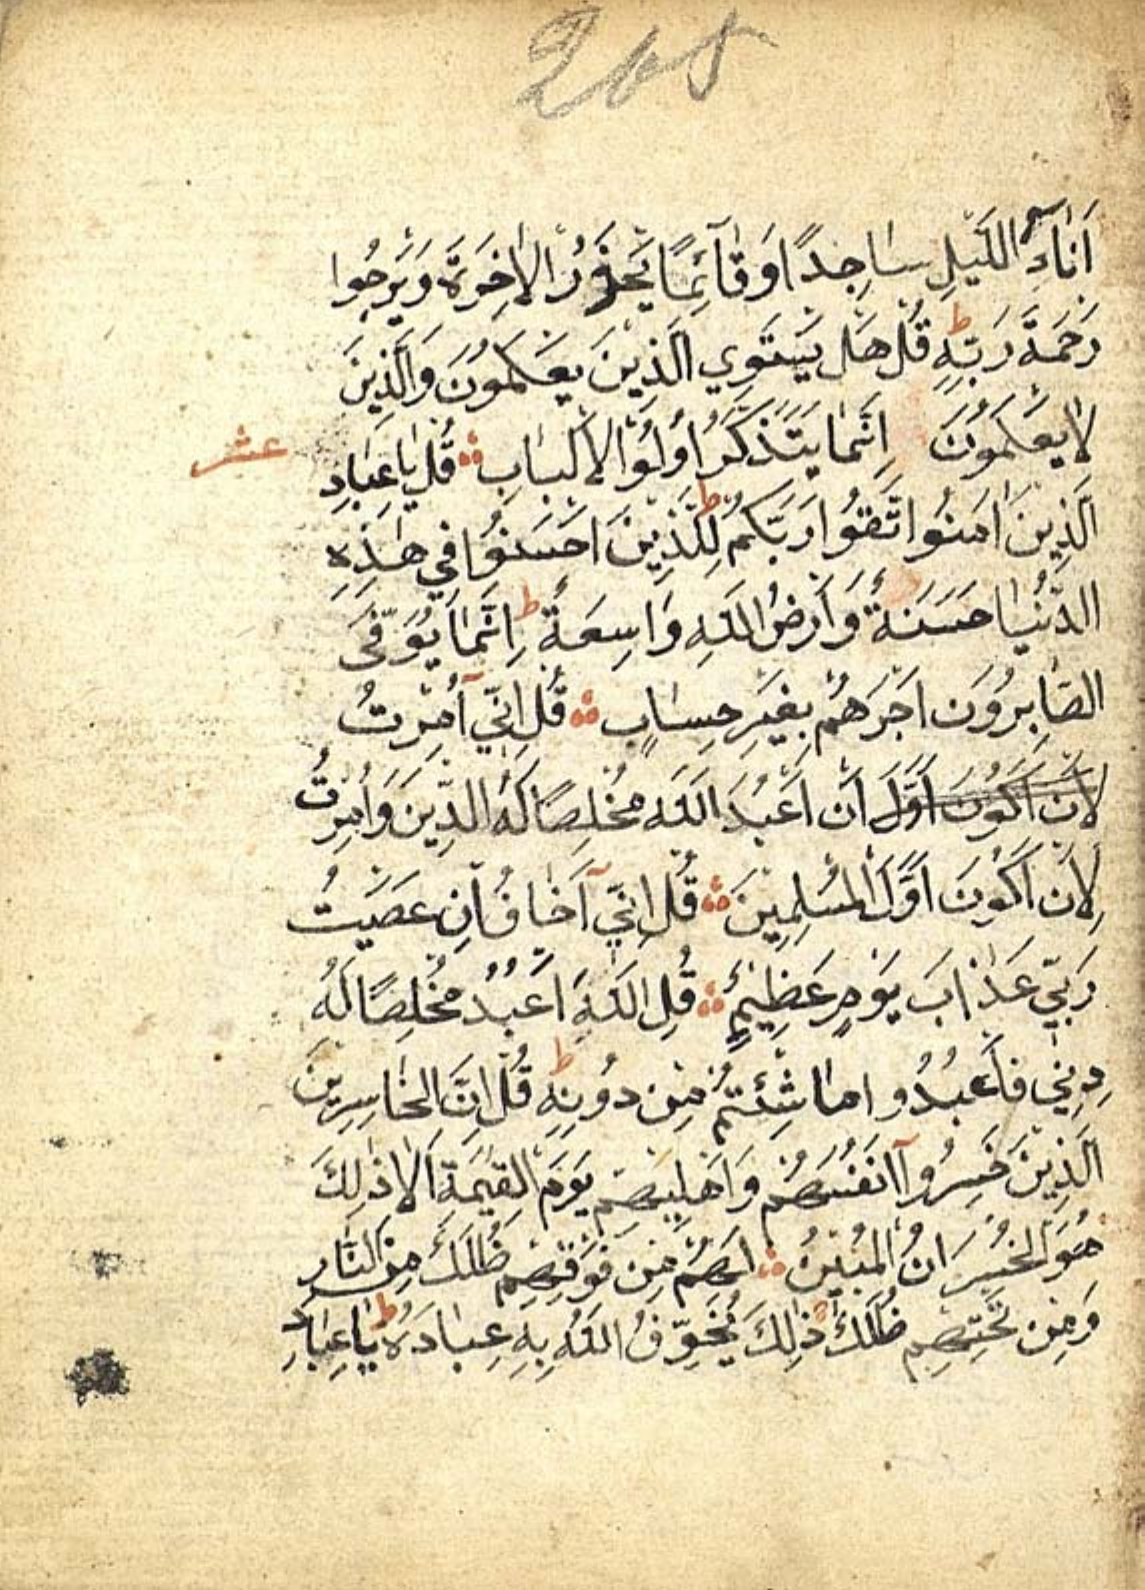 208
اَنَاءَ اللَّيْلِ سَاجِدًا وَقَائِمًا يَحْذَرُ الْاٰخِرَةَ وَيَرْجُوا
رَحْمَةَ رَبِّهٖ ط قُلْ هَلْ يَسْتَوِي الَّذِينَ يَعْلَمُونَ وَالَّذِينَ
لَا يَعْلَمُونَ اِنَّمَا يَتَذَكَّرُ اُولُوا الْاَلْبَابِ ۞ قُلْ يَا عِبَادِ
عشر
الَّذِينَ اٰمَنُوا اتَّقُوا رَبَّكُمْ ط لِلَّذِينَ اَحْسَنُوا فِي هٰذِهِ
الدُّنْيَا حَسَنَةٌ وَاَرْضُ اللّٰهِ وَاسِعَةٌ ط اِنَّمَا يُوَفَّى
الصَّابِرُونَ اَجْرَهُمْ بِغَيْرِ حِسَابٍ ۞ قُلْ اِنِّي اُمِرْتُ
لِاَنْ اَكُونَ اَوَّلَ اَنْ اَعْبُدَ اللّٰهَ مُخْلِصًا لَهُ الدِّينَ وَاُمِرْتُ
لِاَنْ اَكُونَ اَوَّلَ الْمُسْلِمِينَ ۞ قُلْ اِنِّي اَخَافُ اِنْ عَصَيْتُ
رَبِّي عَذَابَ يَوْمٍ عَظِيمٍ ۞ قُلِ اللّٰهَ اَعْبُدُ مُخْلِصًا لَهُ
دِينِي فَاعْبُدُوا مَا شِئْتُمْ مِنْ دُونِهٖ ط قُلْ اِنَّ الْخَاسِرِينَ
الَّذِينَ خَسِرُوا اَنْفُسَهُمْ وَاَهْلِيهِمْ يَوْمَ الْقِيٰمَةِ اَلَا ذٰلِكَ
هُوَ الْخُسْرَانُ الْمُبِينُ ۞ لَهُمْ مِنْ فَوْقِهِمْ ظُلَلٌ مِنَ النَّارِ
وَمِنْ تَحْتِهِمْ ظُلَلٌ ذٰلِكَ يُخَوِّفُ اللّٰهُ بِهٖ عِبَادَهُ ط يَا عِبَادِ